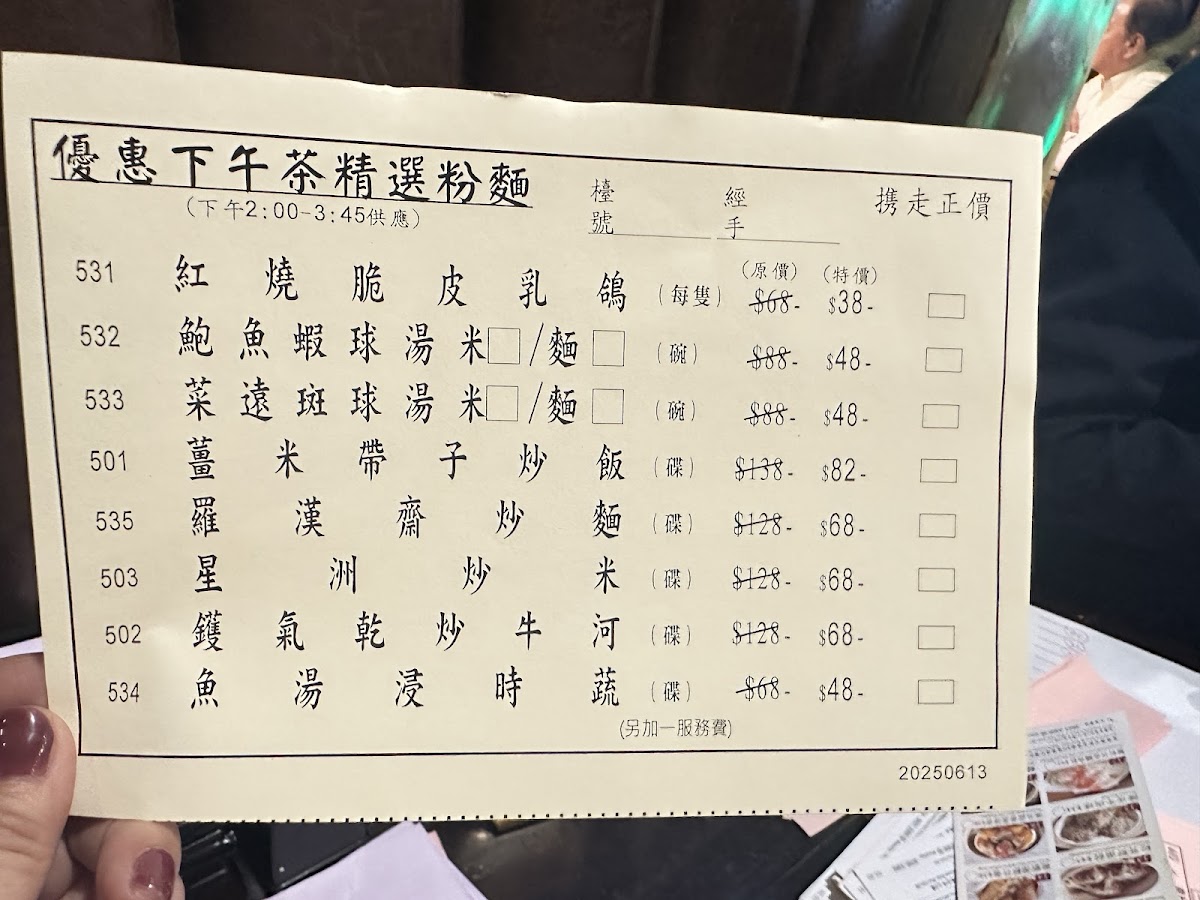 優惠下午茶精選粉麵
(下午2:00-3:45供應)
檯號 經手 携走正價
(原價) (特價)
531 紅燒脆皮乳鴿 (每隻) $68- $38-
532 鮑魚蝦球湯米□/麵□ (碗) $88- $48-
533 菜遠斑球湯米□/麵□ (碗) $88- $48-
501 薑米帶子炒飯 (碟) $138- $82-
535 羅漢齋炒麵 (碟) $128- $68-
503 星洲炒米 (碟) $128- $68-
502 鑊氣乾炒牛河 (碟) $128- $68-
534 魚湯浸時蔬 (碟) $68- $48-
(另加一服務費)
20250613